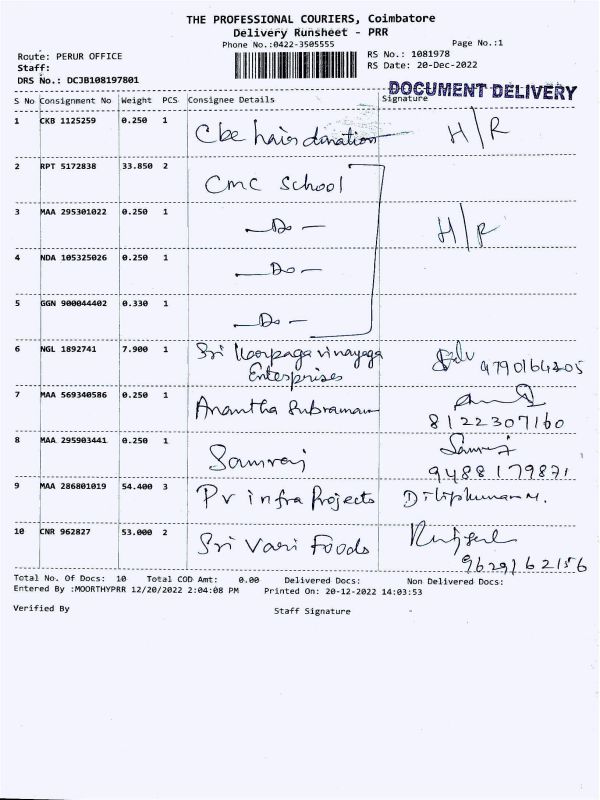 THE PROFESSIONAL COURIERS, Coimbatore
Delivery Runsheet - PRR
Phone No.:0422-3505555
Page No.:1
Route: PERUR OFFICE
RS No.: 1081978
Staff:
RS Date: 20-Dec-2022
DRS No.: DCJB108197801
DOCUMENT DELIVERY
S No Consignment No Weight PCS Consignee Details Signature
1 CKB 1125259 0.250 1 Cbe hair donation H/R
2 RPT 5172838 33.850 2 CMC School
3 MAA 295301022 0.250 1 —Do— H/R
4 NDA 105325026 0.250 1 —Do—
5 GGN 900044402 0.330 1 —Do—
6 NGL 1892741 7.900 1 Sri Karpaga vinayaga
Enterprises 9790164205
7 MAA 569340586 0.250 1 Anantha Subramani
8122307160
8 MAA 295903441 0.250 1 Samraj Samraj
9488179871
9 MAA 286801019 54.400 3 PV infra Projects Dilipkumar M.
10 CNR 962827 53.000 2 Sri Vari Foods
9629162156
Total No. Of Docs: 10 Total COD Amt: 0.00 Delivered Docs: Non Delivered Docs:
Entered By :MOORTHYPRR 12/20/2022 2:04:08 PM Printed On: 20-12-2022 14:03:53
Verified By Staff Signature